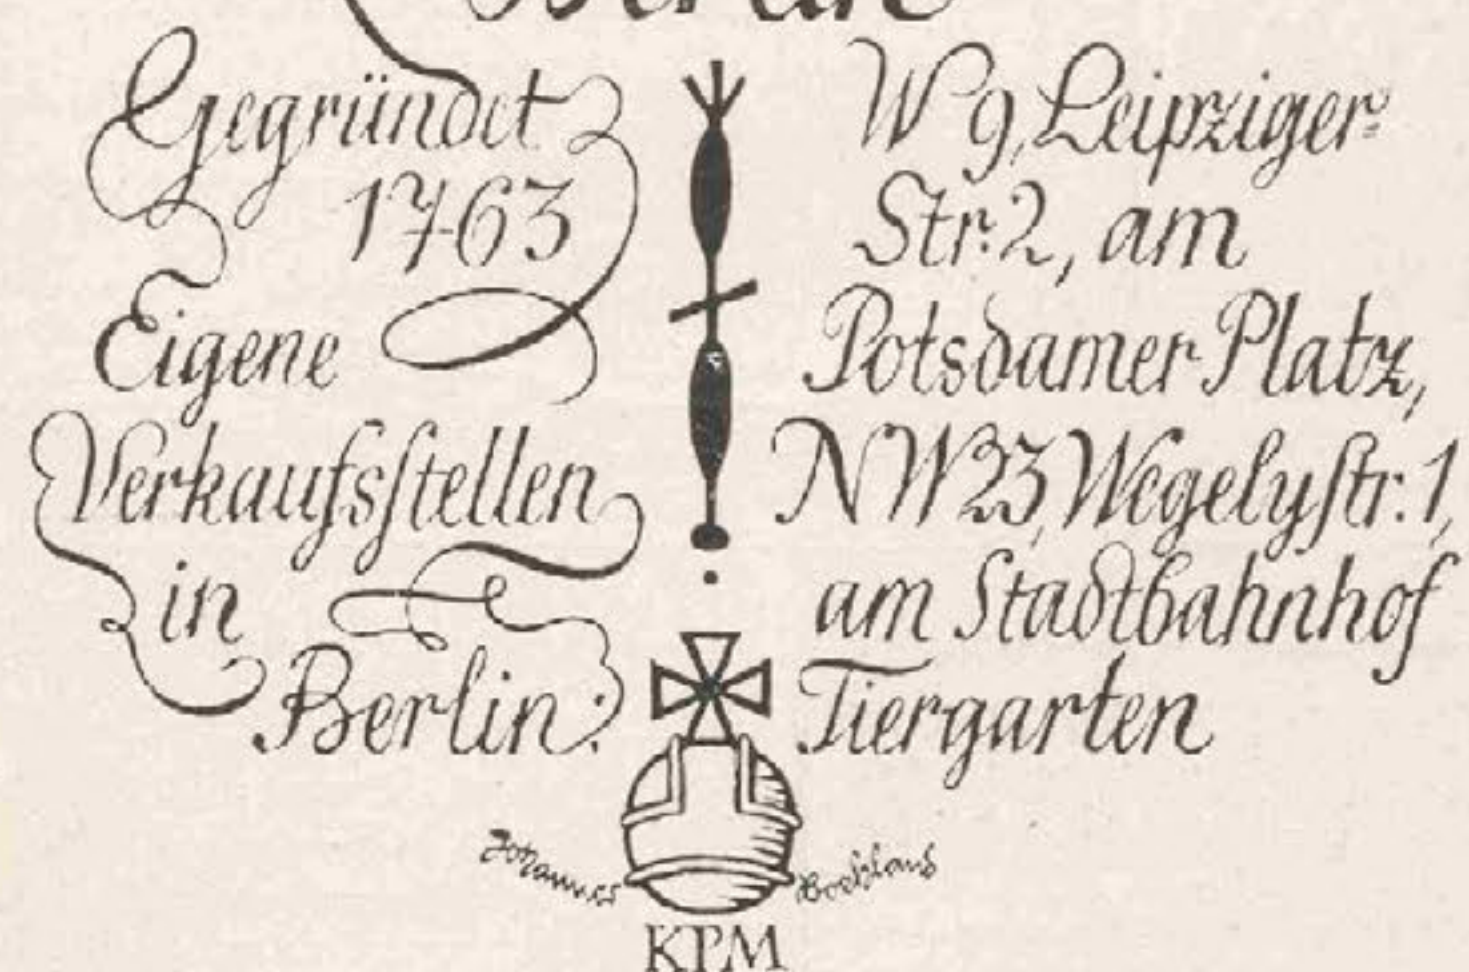 Berlin
Gegründet
1763
Eigene
Verkaufsſtellen
in
Berlin:
W 9, Leipziger-
Str. 2, am
Potsdamer Platz,
NW 23, Wegelyſtr. 1,
am Stadtbahnhof
Tiergarten
Johannes Boehland
KPM